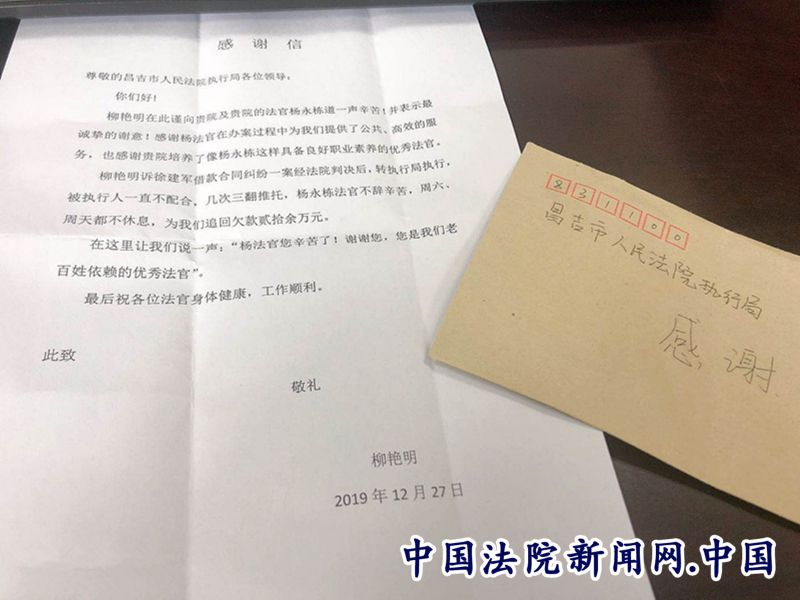 感 谢 信
尊敬的昌吉市人民法院执行局各位领导:
你们好!
柳艳明在此谨向贵院及贵院的法官杨永栋道一声辛苦!并表示最
诚挚的谢意!感谢杨法官在办案过程中为我们提供了公共、高效的服
务,也感谢贵院培养了像杨永栋这样具备良好职业素养的优秀法官。
柳艳明诉徐建军借款合同纠纷一案经法院判决后,转执行局执行,
被执行人一直不配合,几次三翻推托,杨永栋法官不辞辛苦,周六、
周天都不休息,为我们追回欠款贰拾余万元。
在这里让我们说一声:“杨法官您辛苦了!谢谢您,您是我们老
百姓依赖的优秀法官”。
最后祝各位法官身体健康,工作顺利。
此致
敬礼
柳艳明
2019 年 12 月 27 日
831100
昌吉市人民法院执行局
感 谢
中国法院新闻网.中国